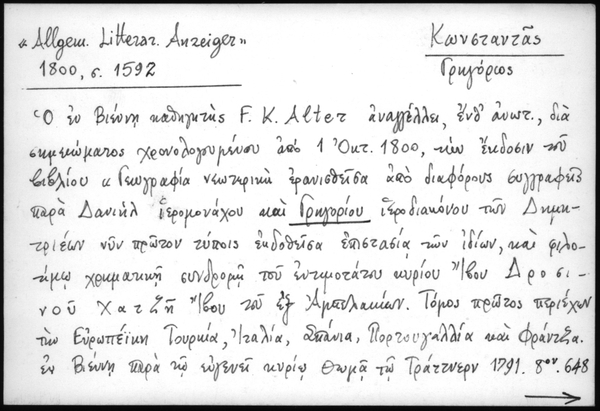 « Allgem. Litterar. Anzeiger »
1800, σ. 1592
Κωνσταντᾶς
Γρηγόριος
Ὁ ἐν Βιέννῃ καθηγητὴς F. K. Alter ἀναγγέλλει, ἔνθ' ἀνωτ., διὰ
σημειώματος χρονολογουμένου ἀπὸ 1 Ὀκτ. 1800, τὴν ἔκδοσιν τοῦ
βιβλίου « Γεωγραφία νεωτερικὴ ἐρανισθεῖσα ἀπὸ διαφόρους συγγραφεῖς
παρὰ Δανιὴλ ἱερομονάχου καὶ Γρηγορίου ἱεροδιακόνου τῶν Δημη-
τριέων νῦν πρῶτον τύποις ἐκδοθεῖσα ἐπιστασίᾳ τῶν ἰδίων, καὶ φιλο-
τίμῳ χρηματικῇ συνδρομῇ τοῦ ἐντιμοτάτου κυρίου Ἴβου Δροσι-
νοῦ Χατζῆ Ἴβου τοῦ ἐξ Ἀμπελακίων. Τόμος πρῶτος περιέχων
τὴν Εὐρωπέϊκη Τουρκία, Ἰταλία, Σπάνια, Πορτουγαλλία καὶ Φράντζα.
ἐν Βιέννῃ παρὰ τῷ εὐγενεῖ κυρίῳ Θωμᾷ τῷ Τράττνερν 1791. 8ον. 648